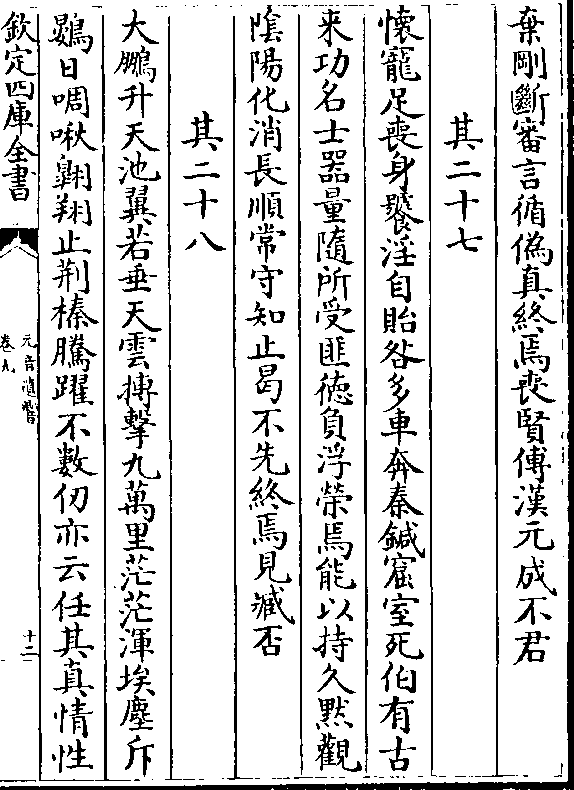 棄剛斷審言循偽真終焉喪賢傅漢元成不君
其二十七
懐寵足喪身饕淫自貽咎多車奔秦鍼窟室死伯有古
来功名士器量隨所受匪徳負浮榮焉能以持久黙觀
隂陽化消長順常守知止曷不先終焉見臧否
其二十八
大鵬升天池翼若垂天雲搏擊九萬里茫茫渾埃塵斥
鷃日啁啾翺翔止荆榛騰躍不數仞亦云任其真情性
欽定四庫全書
元音遺響
卷九
十二